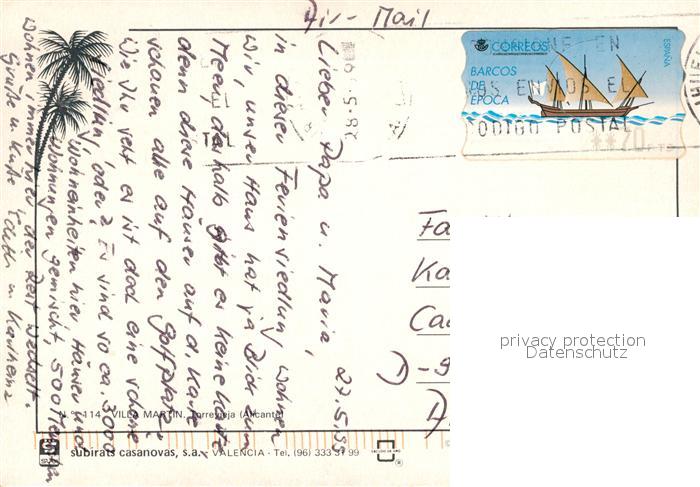 Air-Mail
27.5.99
Lieber Papa u. Maria,
in dieser Feriensiedlung wohnen
wir, unser Haus hat ja Blick zum
Meer, deshalb gibt es keine Karte
denn diese Häuser auf d. Karte
schauen alle auf den Golfplatz.
Wie Ihr seht es ist doch eine schöne
Siedlung, oder? Es sind so ca. 3000
Wohneinheiten hier, Häuser und
Wohnungen gemischt, 500
wohnen immer der Rest wechselt.
Grüße u. Küße Edith u. Karlheinz
CORREOS
ESPAÑA
BARCOS
DE
EPOCA
EN
ENVIOS EL
CODIGO POSTAL
**70 PTS
28.5.99
Fa
Ka
Ca
D-9
privacy protection
Datenschutz
N.º 114 VILLA MARTIN. Torrevieja (Alicante)
subirats casanovas, s.a. - VALENCIA - Tel. (96) 333 31 99